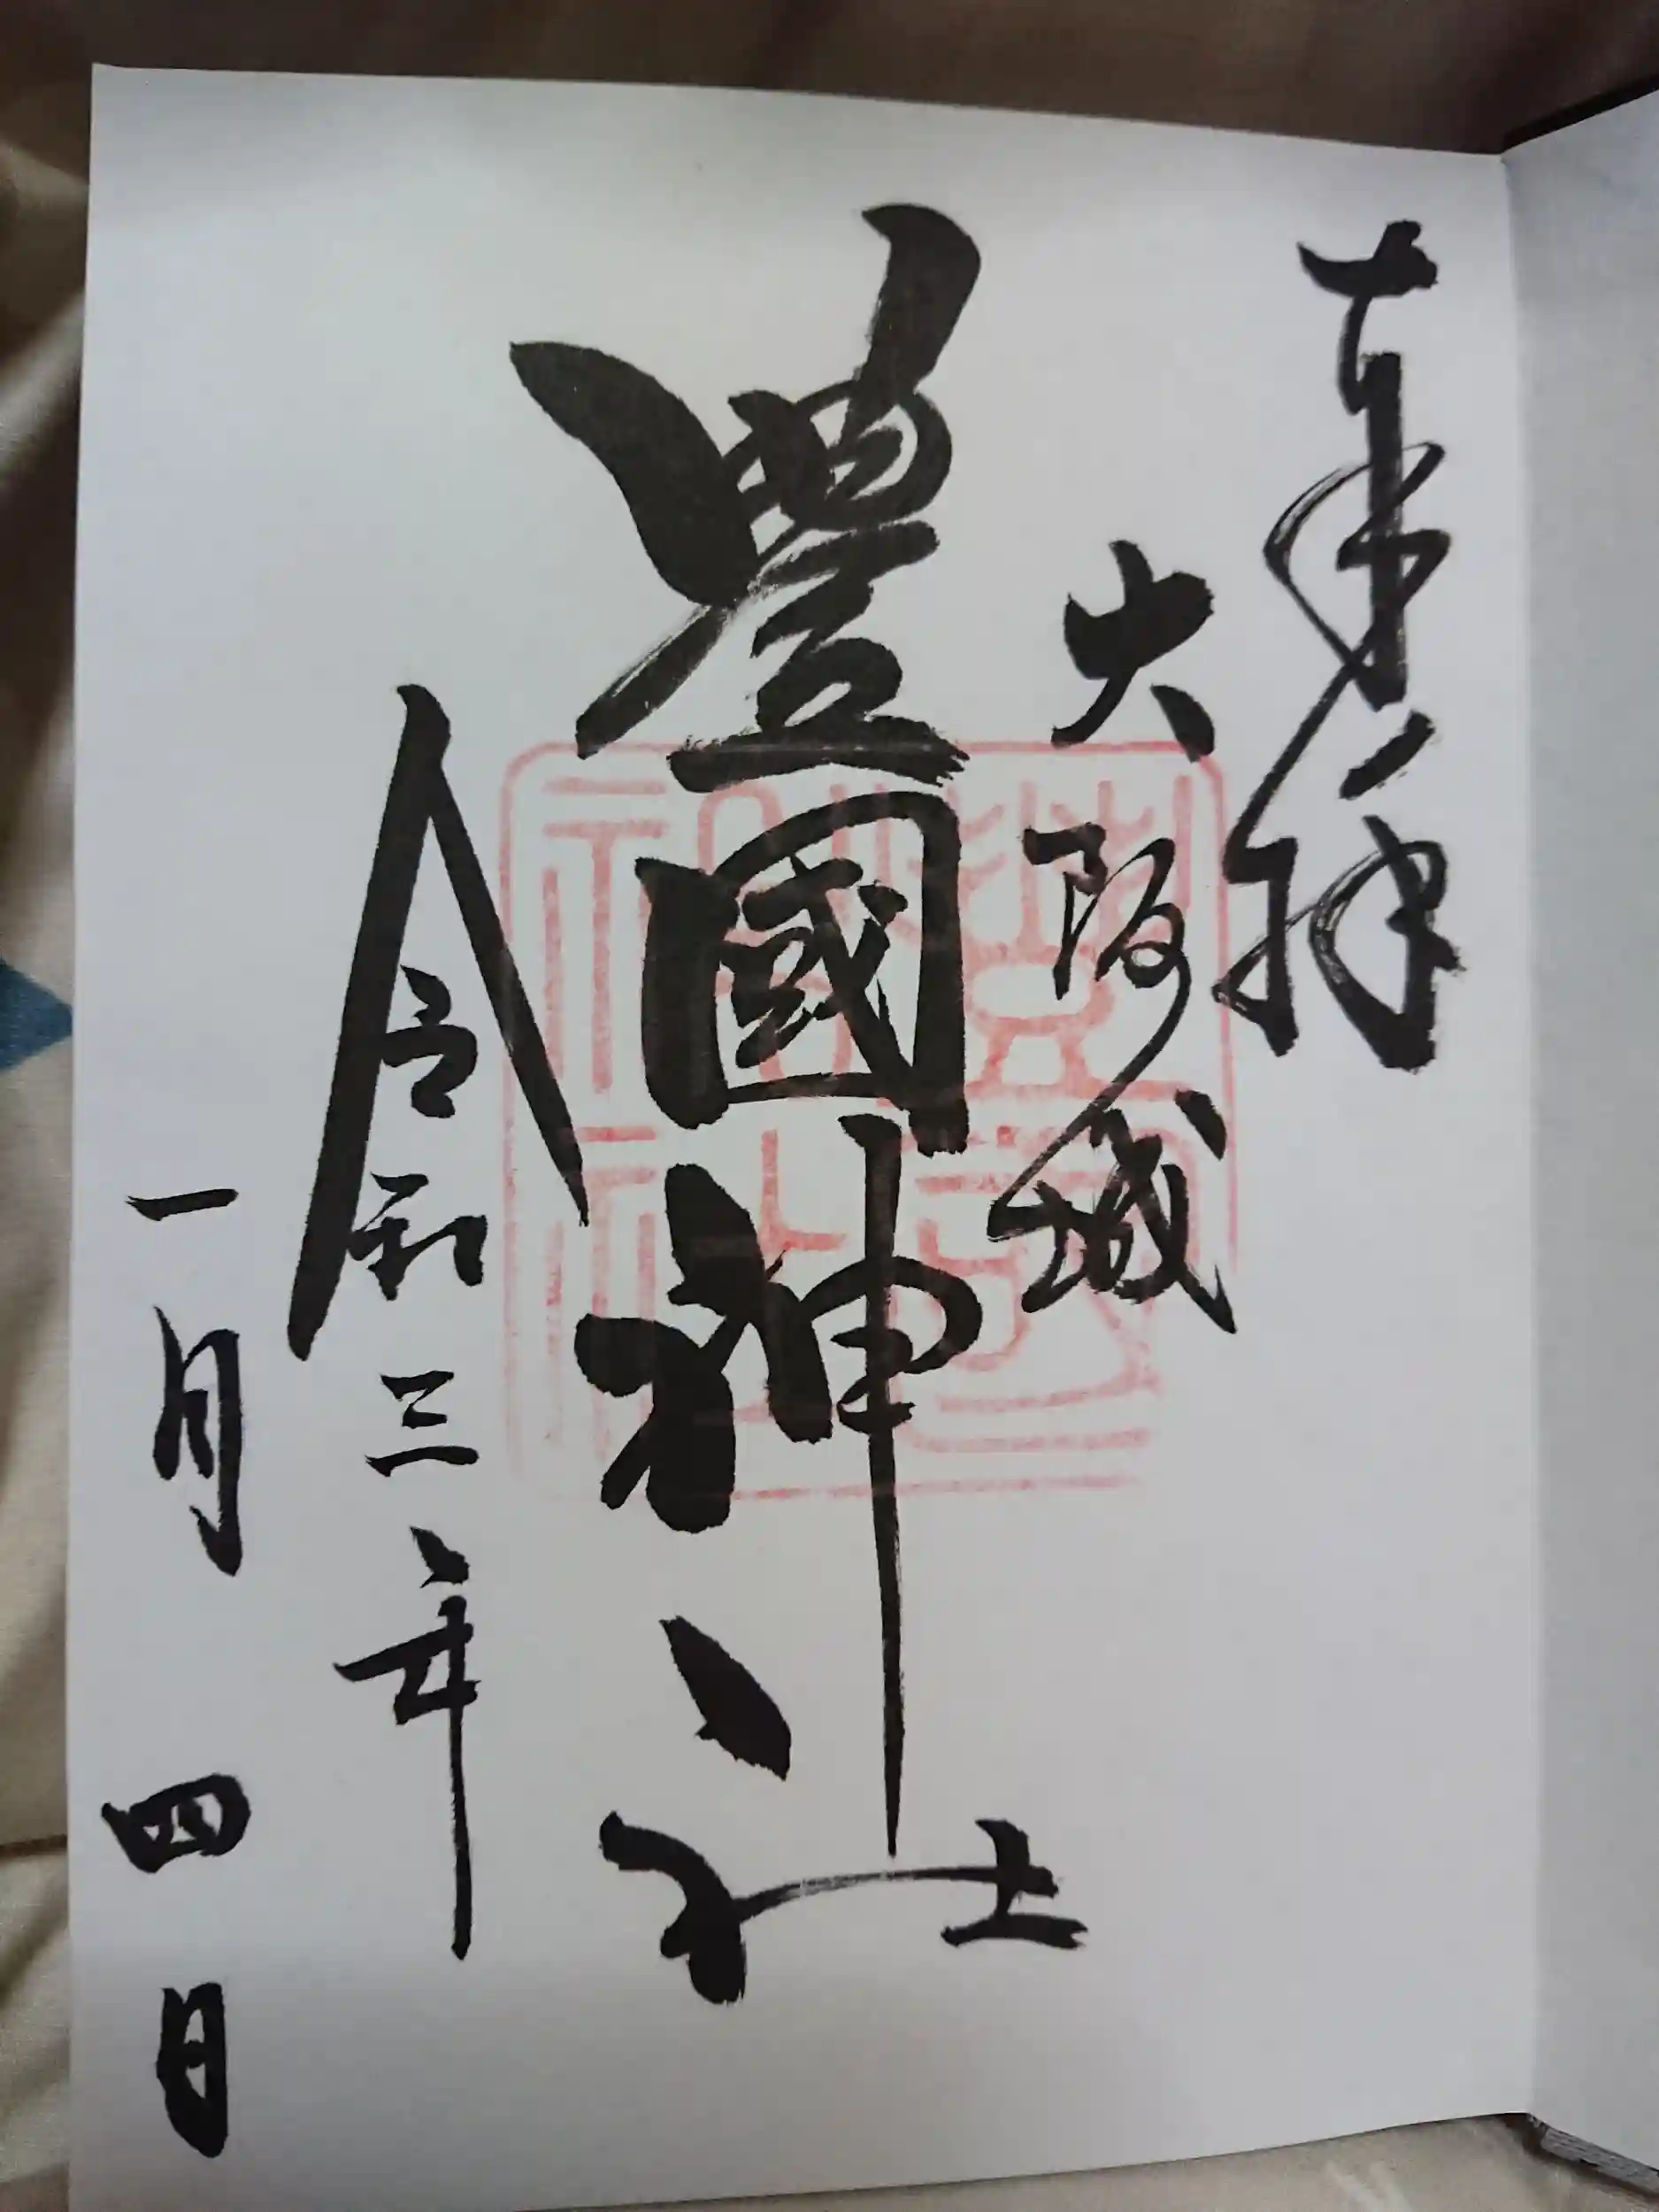 奉拝
大阪城
豊國神社
令和三年
一月四日